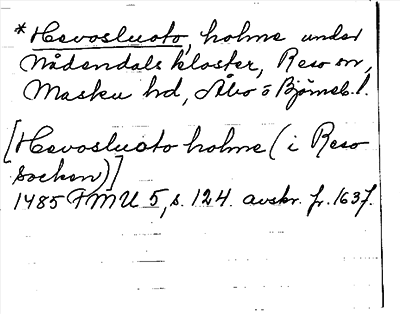 *Hevosluoto, holme under
Nådendals kloster, Reso sn,
Masku hd, Åbo o Björneb. l.
[Hevosluoto holme (i Reso
Socken)]
1485 FMU 5, s. 124. avskr. fr. 1637.